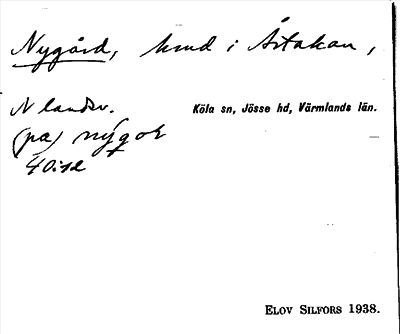 Nygård, hmd i Årtakan,
N landsv. Köla sn, Jösse hd, Värmlands län.
(på) nýgoḷ
40:12
ELOV SILFORS 1938.